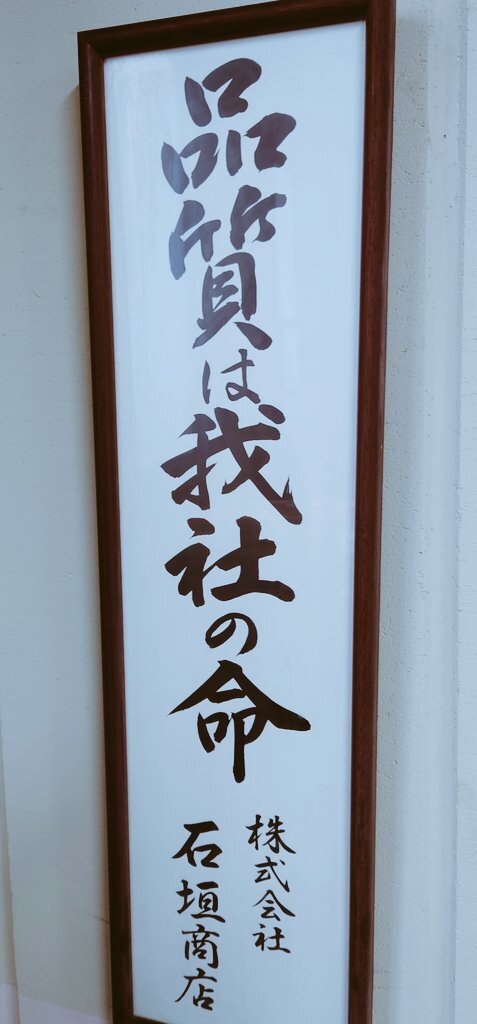 品質は我社の命
株式会社
石垣商店